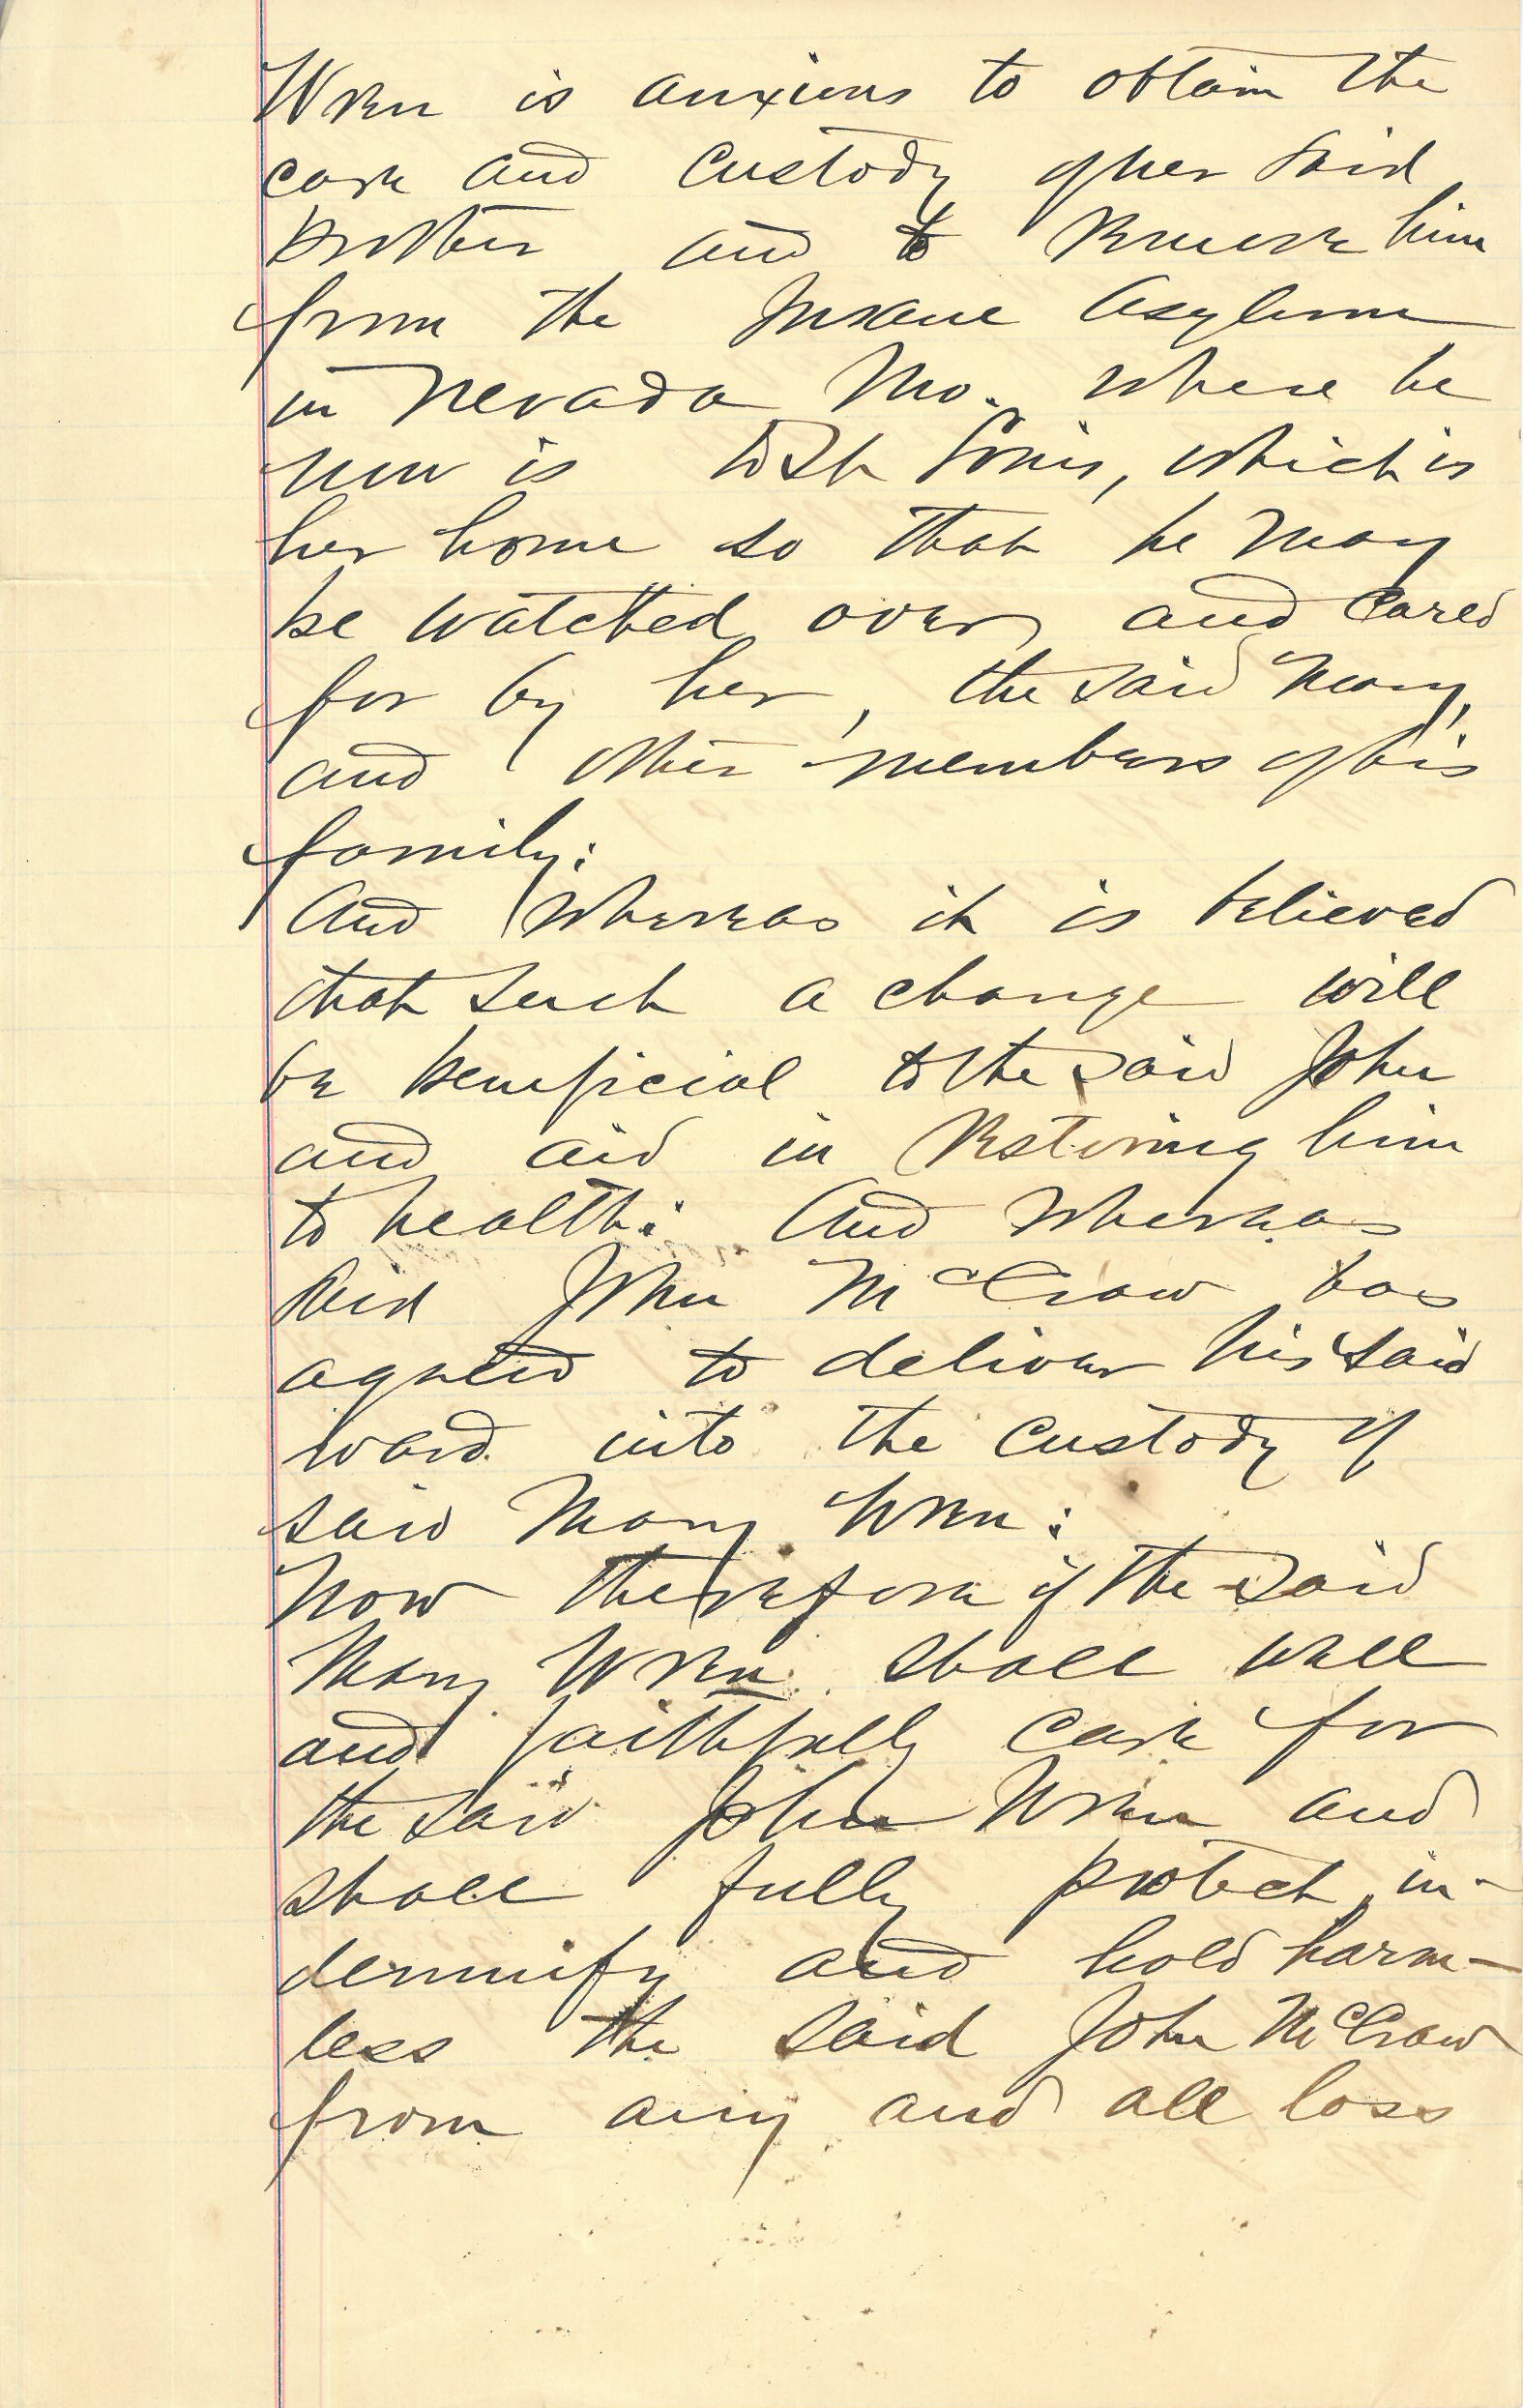 Wren is anxious to obtain the
care and custody of her said
brother and to remove him
from the Insane Asylum
in Nevada Mo. where he
now is to St Louis, which is
her home so that he may
be watched over and cared
for by her, the said Mary,
and other members of his
family:
And Whereas it is believed
that such a change will
be beneficial to the said John
and aid in restoring him
to health: And Whereas
said John McCraw has
agreed to deliver his said
ward into the custody of
said Mary Wren:
Now therefore if the said
Mary Wren shall well
and faithfully care for
the said John Wren and
shall fully protect, in-
demnify and hold harm-
less the said John McCraw
from any and all loss